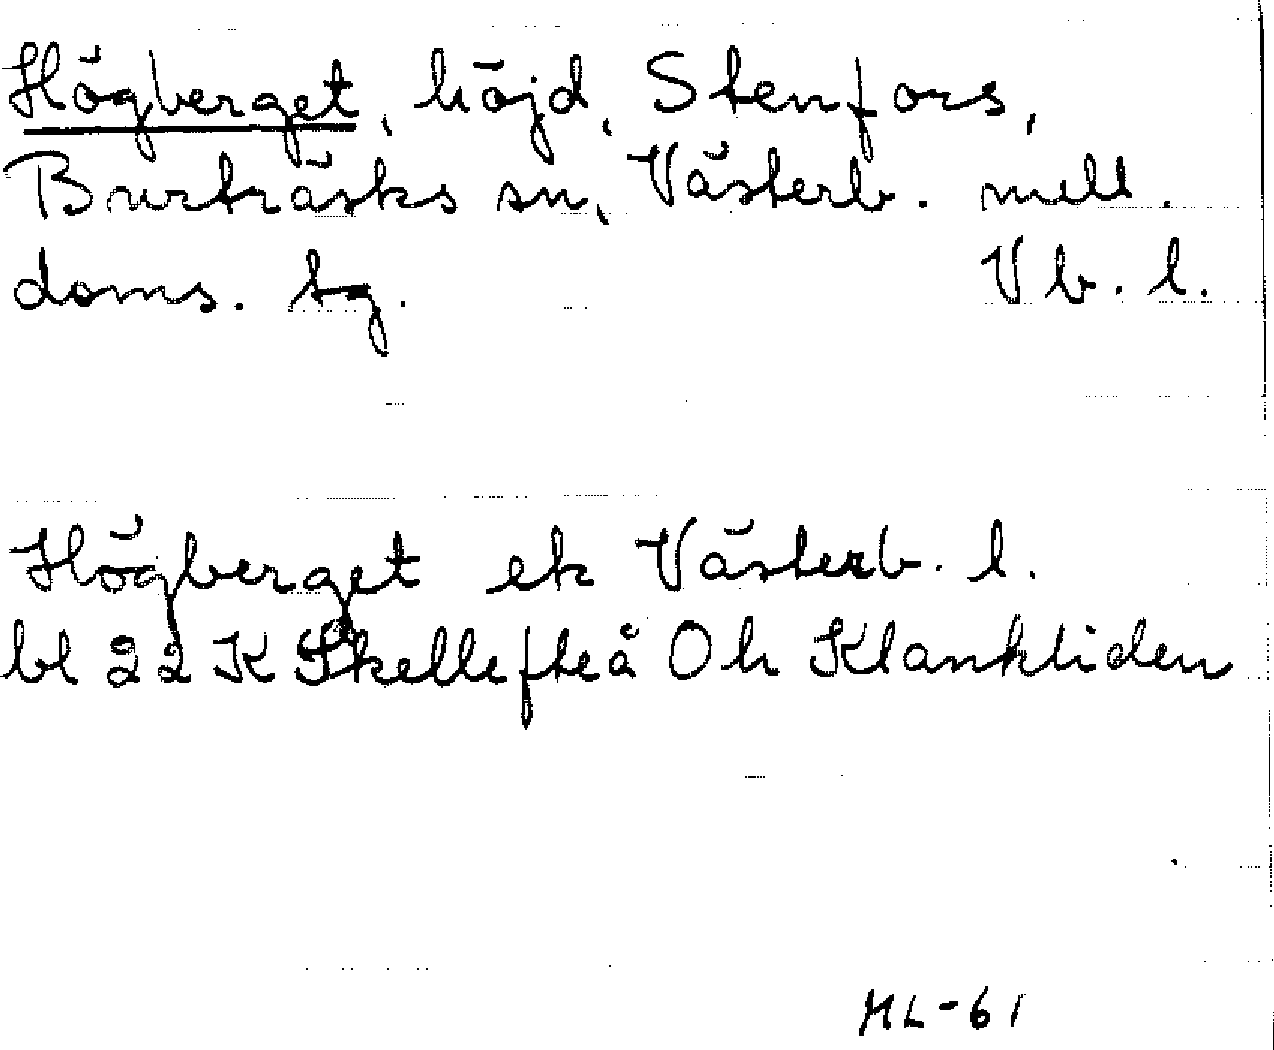 Högberget, höjd, Stenfors,
Burträsks sn, Västerb. mell.
doms. tg. Vb. l.
Högberget ek Västerb. l.
bl 22 K Skellefteå Oh Klankliden
HL-61